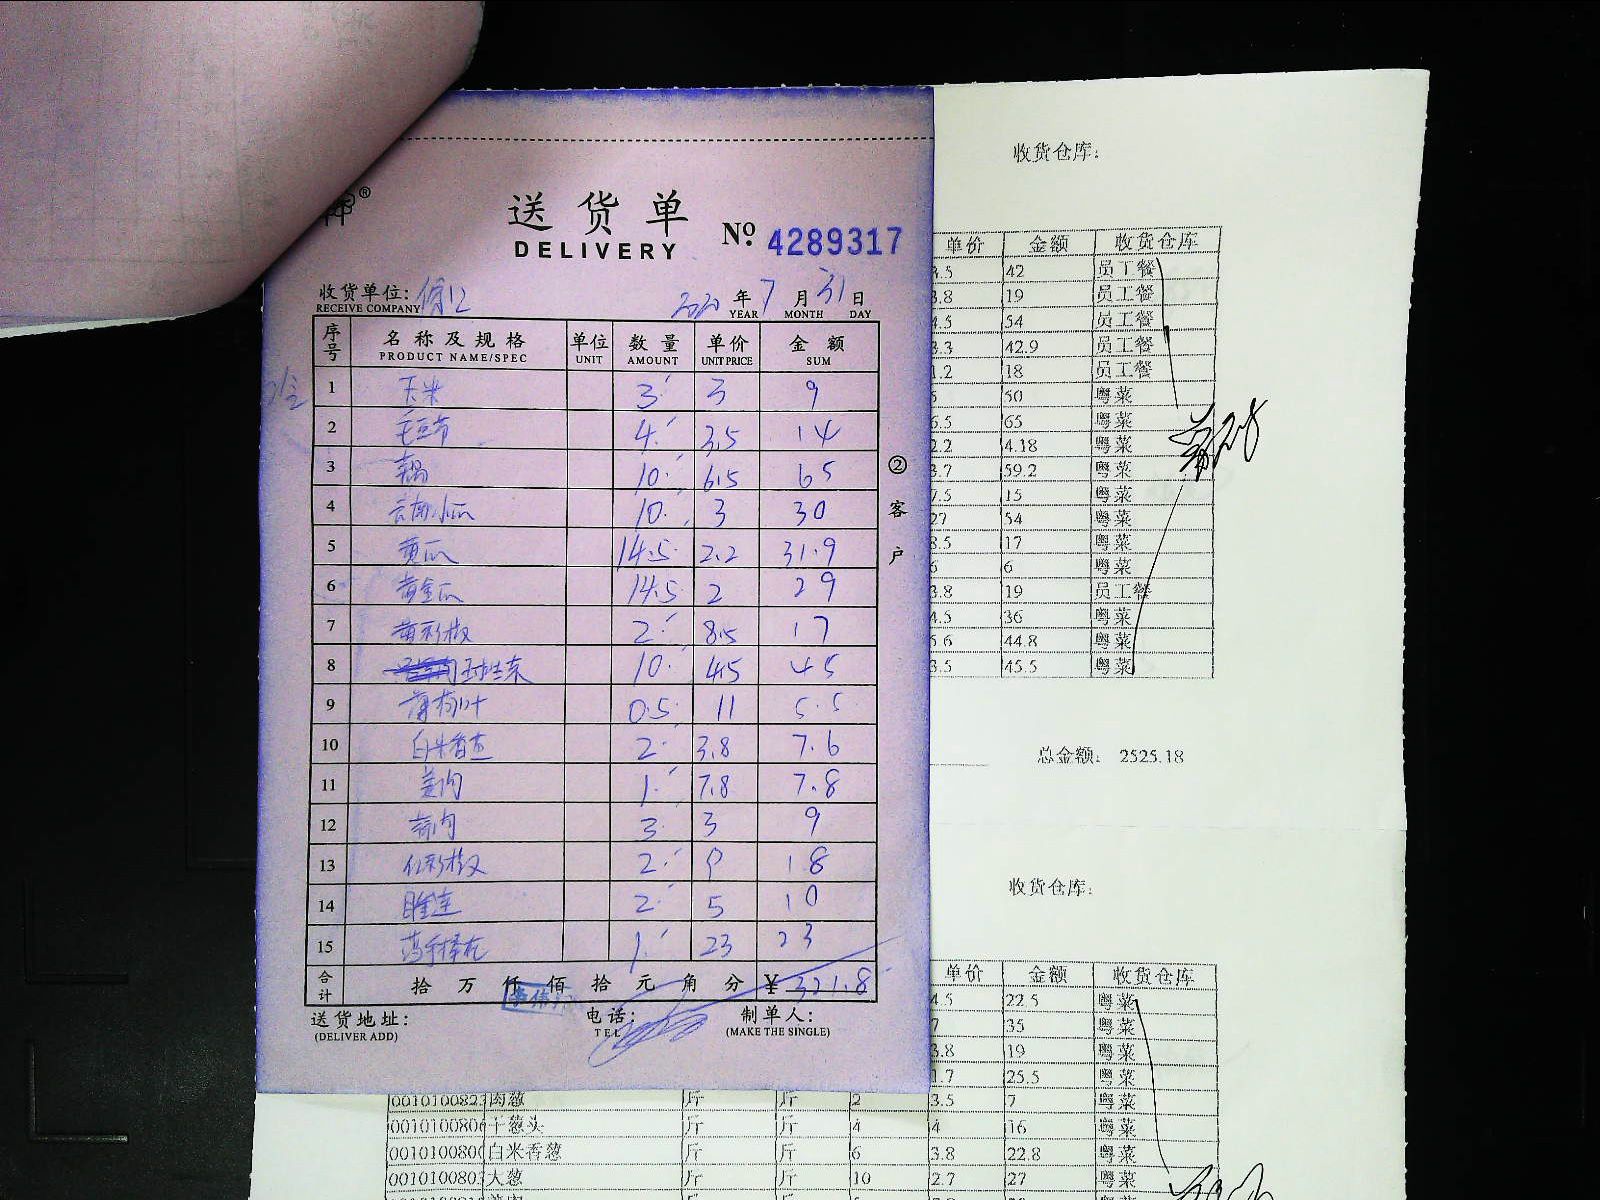 收货仓库:
送货单
DELIVERY
№ 4289317
收货单位:
RECEIVE COMPANY
2020 年 7 月 31 日
YEAR MONTH DAY
序号 名称及规格 单位 数量 单价 金额
PRODUCT NAME/SPEC UNIT AMOUNT UNIT PRICE SUM
1 玉米 3 3 9
2 毛豆节 4 3.5 14
3 10 6.5 65
4 云南小瓜 10 3 30
5 黄瓜 14.5 2.2 31.9
6 黄金瓜 14.5 2 29
7 黄彩椒 2 8.5 17
8 10 4.5 45
9 薄荷叶 0.5 11 5.5
10 白米香葱 2 3.8 7.6
11 姜肉 1 7.8 7.8
12 蒜肉 3 3 9
13 红彩椒 2 9 18
14 2 5 10
15 1 23 23
合计 拾 万 仟 佰 拾 元 角 分 ¥ 321.8
②客户
送货地址:
(DELIVER ADD)
电话:
TEL
制单人:
(MAKE THE SINGLE)
单价 金额 收货仓库
.5 42 员工餐
3.8 19 员工餐
4.5 54 员工餐
3.3 42.9 员工餐
1.2 18 员工餐
5 50 粤菜
6.5 65 粤菜
2.2 4.18 粤菜
3.7 59.2 粤菜
7.5 15 粤菜
27 54 粤菜
8.5 17 粤菜
6 6 粤菜
3.8 19 员工餐
4.5 36 粤菜
5.6 44.8 粤菜
3.5 45.5 粤菜
总金额: 2525.18
收货仓库:
单价 金额 收货仓库
4.5 22.5 粤菜
7 35 粤菜
3.8 19 粤菜
1.7 25.5 粤菜
0010100823 肉葱 斤 斤 2 3.5 7 粤菜
0010100806 干葱头 斤 斤 4 4 16 粤菜
001010080 白米香葱 斤 斤 6 3.8 22.8 粤菜
001010080 大葱 斤 斤 10 2.7 27 粤菜